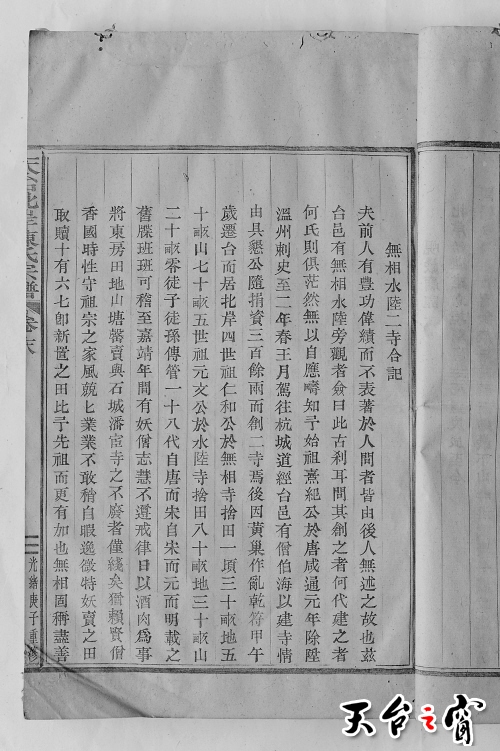 無相水陸二寺合記
夫前人有豐功偉績而不表著於人間者皆由後人無述之故也茲
台邑有無相水陸旁觀者僉曰此古刹耳問其創之者何代建之者
何氏則俱茫然無以自應疇知予始祖熹紀公於唐咸通元年除陞
溫州刺史至二年春王月駕往杭城道經台邑有僧伯海以建寺情
由具懇公隨捐資三百餘兩而創二寺焉後因黃巢作亂乾符甲午
歲遷台而居北岸四世祖仁和公於無相寺捨田一項三十畝地五
十畝山七十畝五世祖元文公於水陸寺捨田八十畝地三十畝山
二十畝零徒子徒孫傳管一十八代自唐而宋自宋而元而明載之
舊牒班班可稽至嘉靖年間有妖僧志慧不遵戒律日以酒肉為事
將東房田地山塘蓄賣與石城潘宦寺之不廢者僅綫矣猶賴賢僧
香國時性守祖宗之家風兢兢業業不敢稍自暇逸微特妖賣之田
取贖十有六七卽新置之田比予先祖而更有加也無相固稱盡善
氏宗譜
卷末
光緒庚子重修
天台之窗